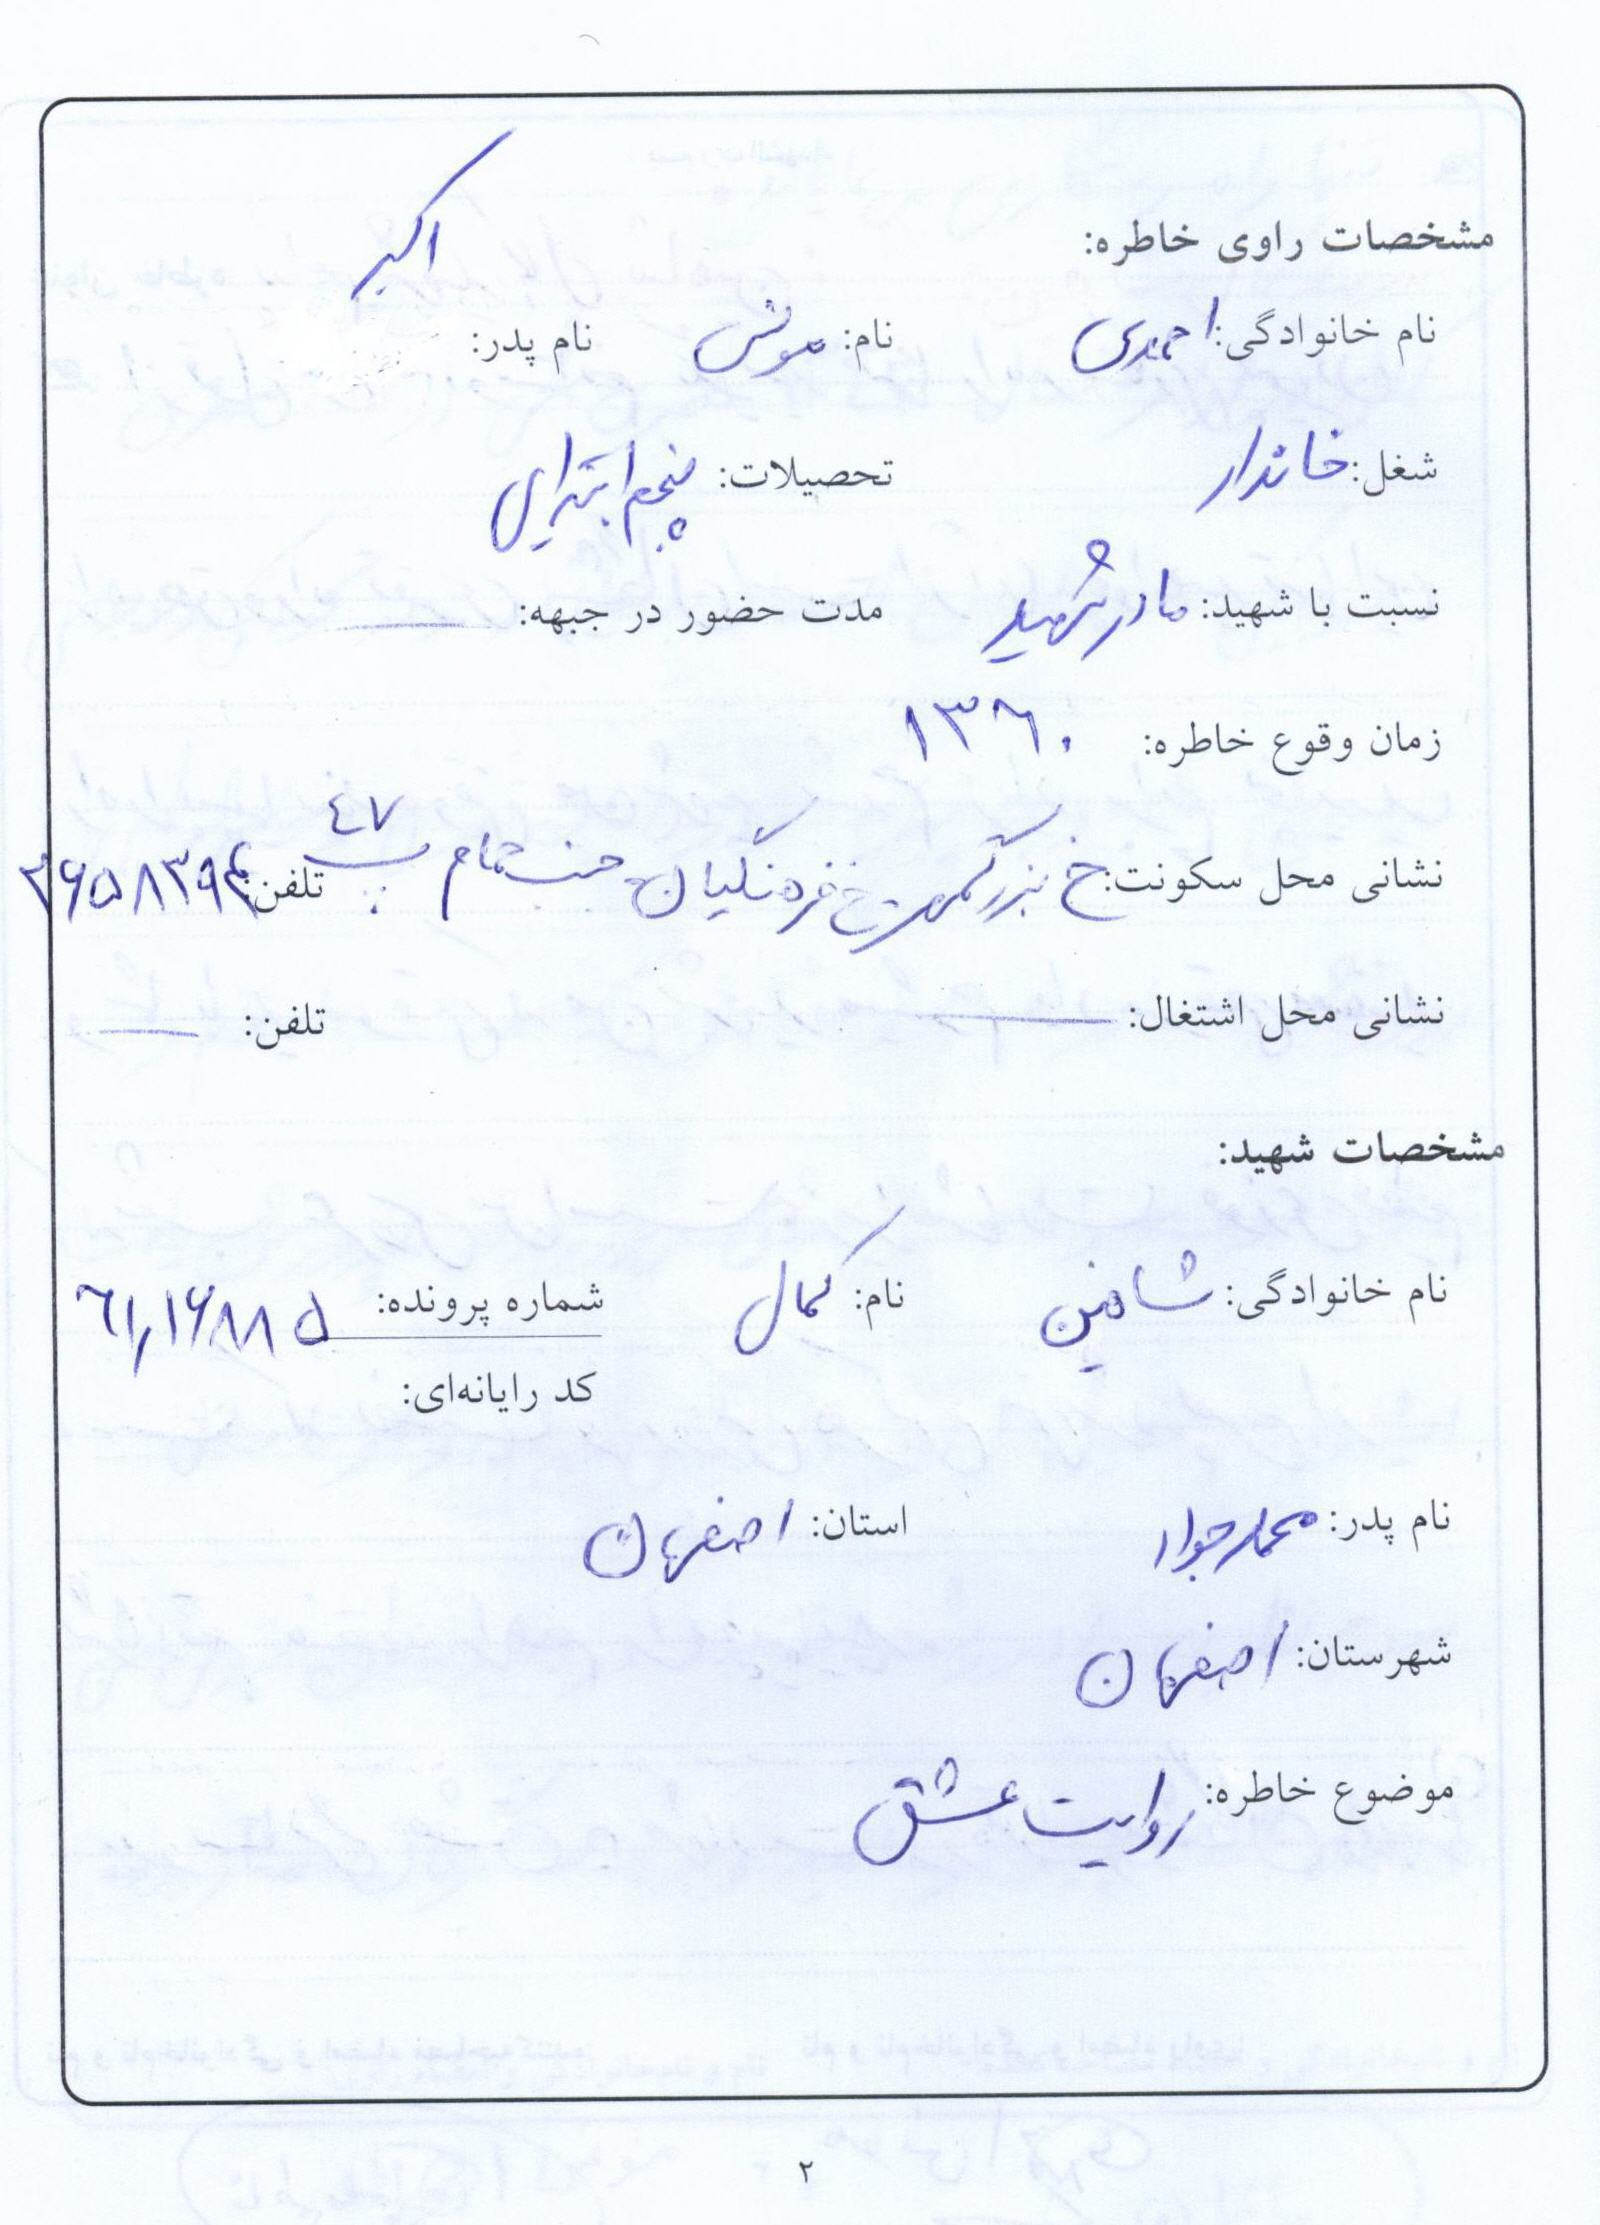 مشخصات راوی خاطره:
نام خانوادگی: احمدی نام: مونس نام پدر: اکبر
شغل: خاندار تحصیلات: پنجم ابتدای
نسبت با شهید: مادر شهید مدت حضور در جبهه:
زمان وقوع خاطره: ۱۳۶۰
نشانی محل سکونت: خ بزرگمهر خ فرهنگیان جنب حمام پ ۴۷ تلفن:
نشانی محل اشتغال: تلفن:
مشخصات شهید:
نام خانوادگی: شامین نام: کمال شماره پرونده: ۶۱,۱۶۸۸۵
کد رایانه‌ای:
نام پدر: محمدجواد استان: اصفهان
شهرستان: اصفهان
موضوع خاطره: روایت عشق
۲